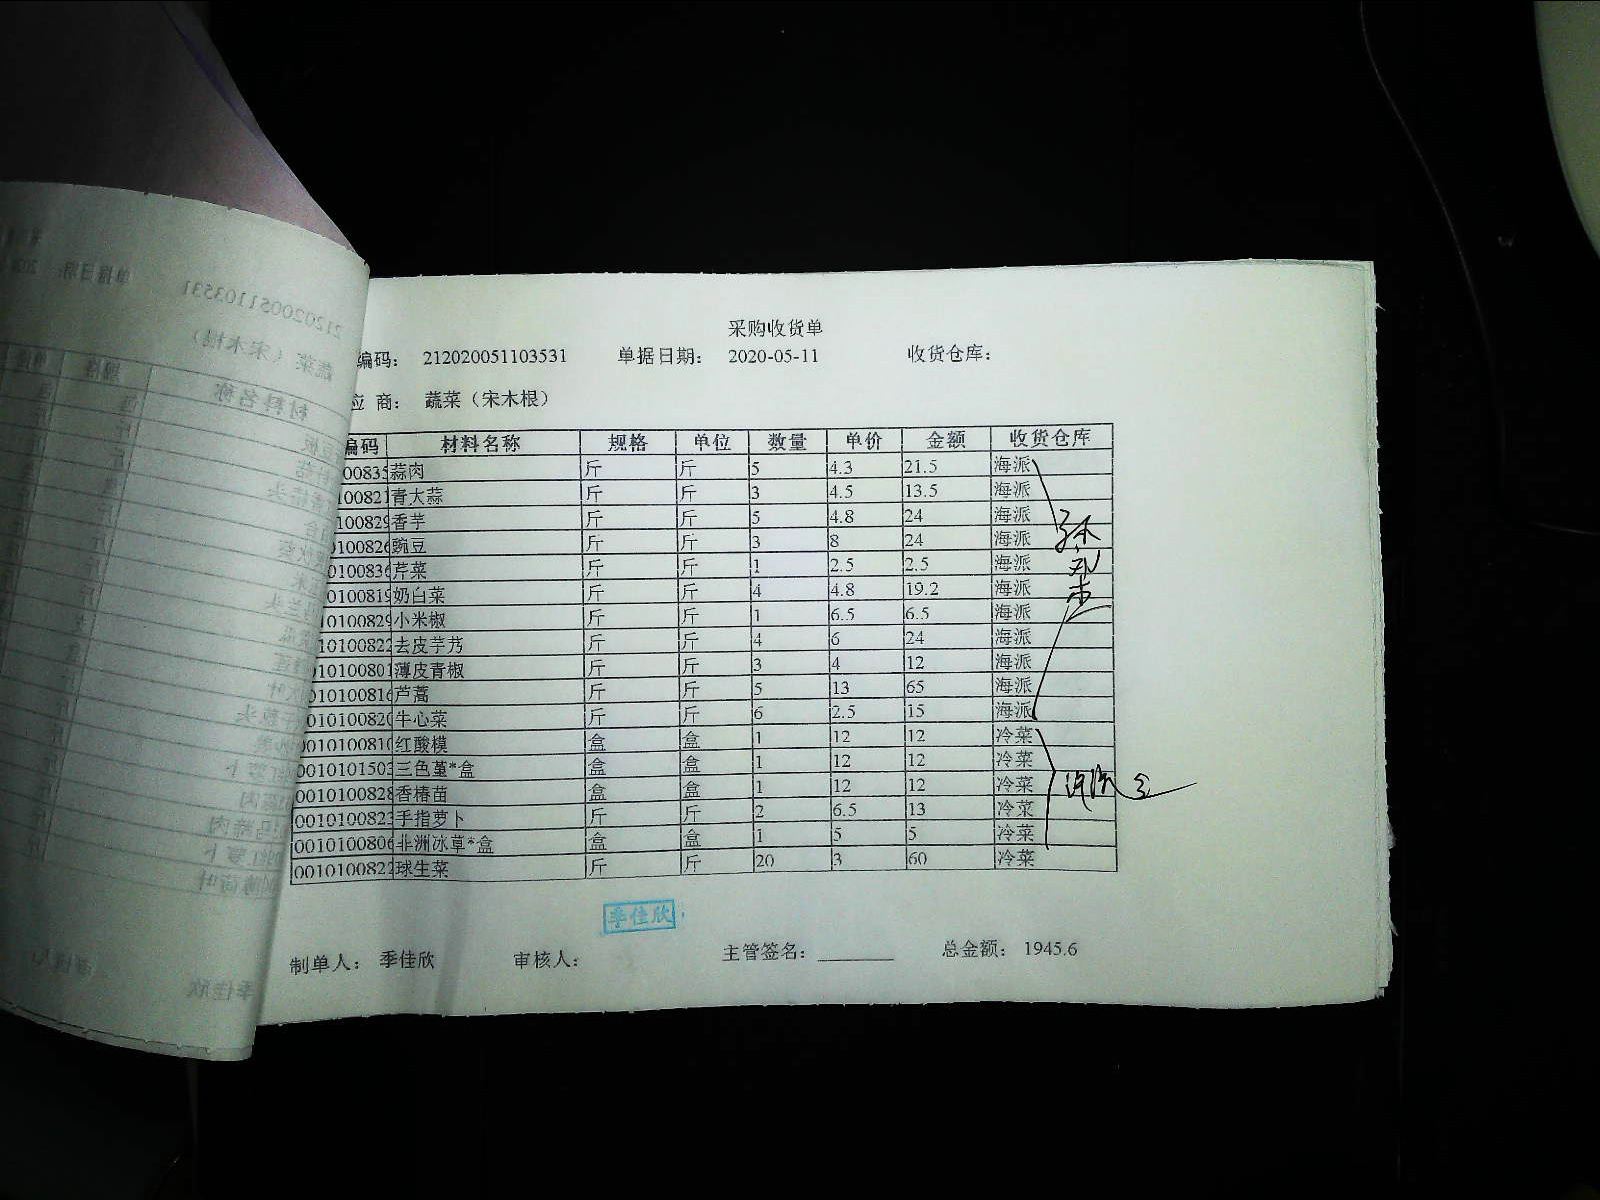 采购收货单
编码： 212020051103531 单据日期： 2020-05-11 收货仓库：
应 商： 蔬菜（宋木根）
编码 材料名称 规格 单位 数量 单价 金额 收货仓库
00835 蒜肉 斤 斤 5 4.3 21.5 海派
100821 青大蒜 斤 斤 3 4.5 13.5 海派
100829 香芋 斤 斤 5 4.8 24 海派
0100826 豌豆 斤 斤 3 8 24 海派
0100836 芹菜 斤 斤 1 2.5 2.5 海派
0100819 奶白菜 斤 斤 4 4.8 19.2 海派
10100829 小米椒 斤 斤 1 6.5 6.5 海派
10100822 去皮芋艿 斤 斤 4 6 24 海派
010100801 薄皮青椒 斤 斤 3 4 12 海派
010100816 芦蒿 斤 斤 5 13 65 海派
010100820 牛心菜 斤 斤 6 2.5 15 海派
0010100810 红酸模 盒 盒 1 12 12 冷菜
0010101503 三色堇*盒 盒 盒 1 12 12 冷菜
0010100828 香椿苗 盒 盒 1 12 12 冷菜
0010100823 手指萝卜 斤 斤 2 6.5 13 冷菜
0010100806 非洲冰草*盒 盒 盒 1 5 5 冷菜
0010100822 球生菜 斤 斤 20 3 60 冷菜
季佳欣
制单人： 季佳欣 审核人： 主管签名： 总金额： 1945.6